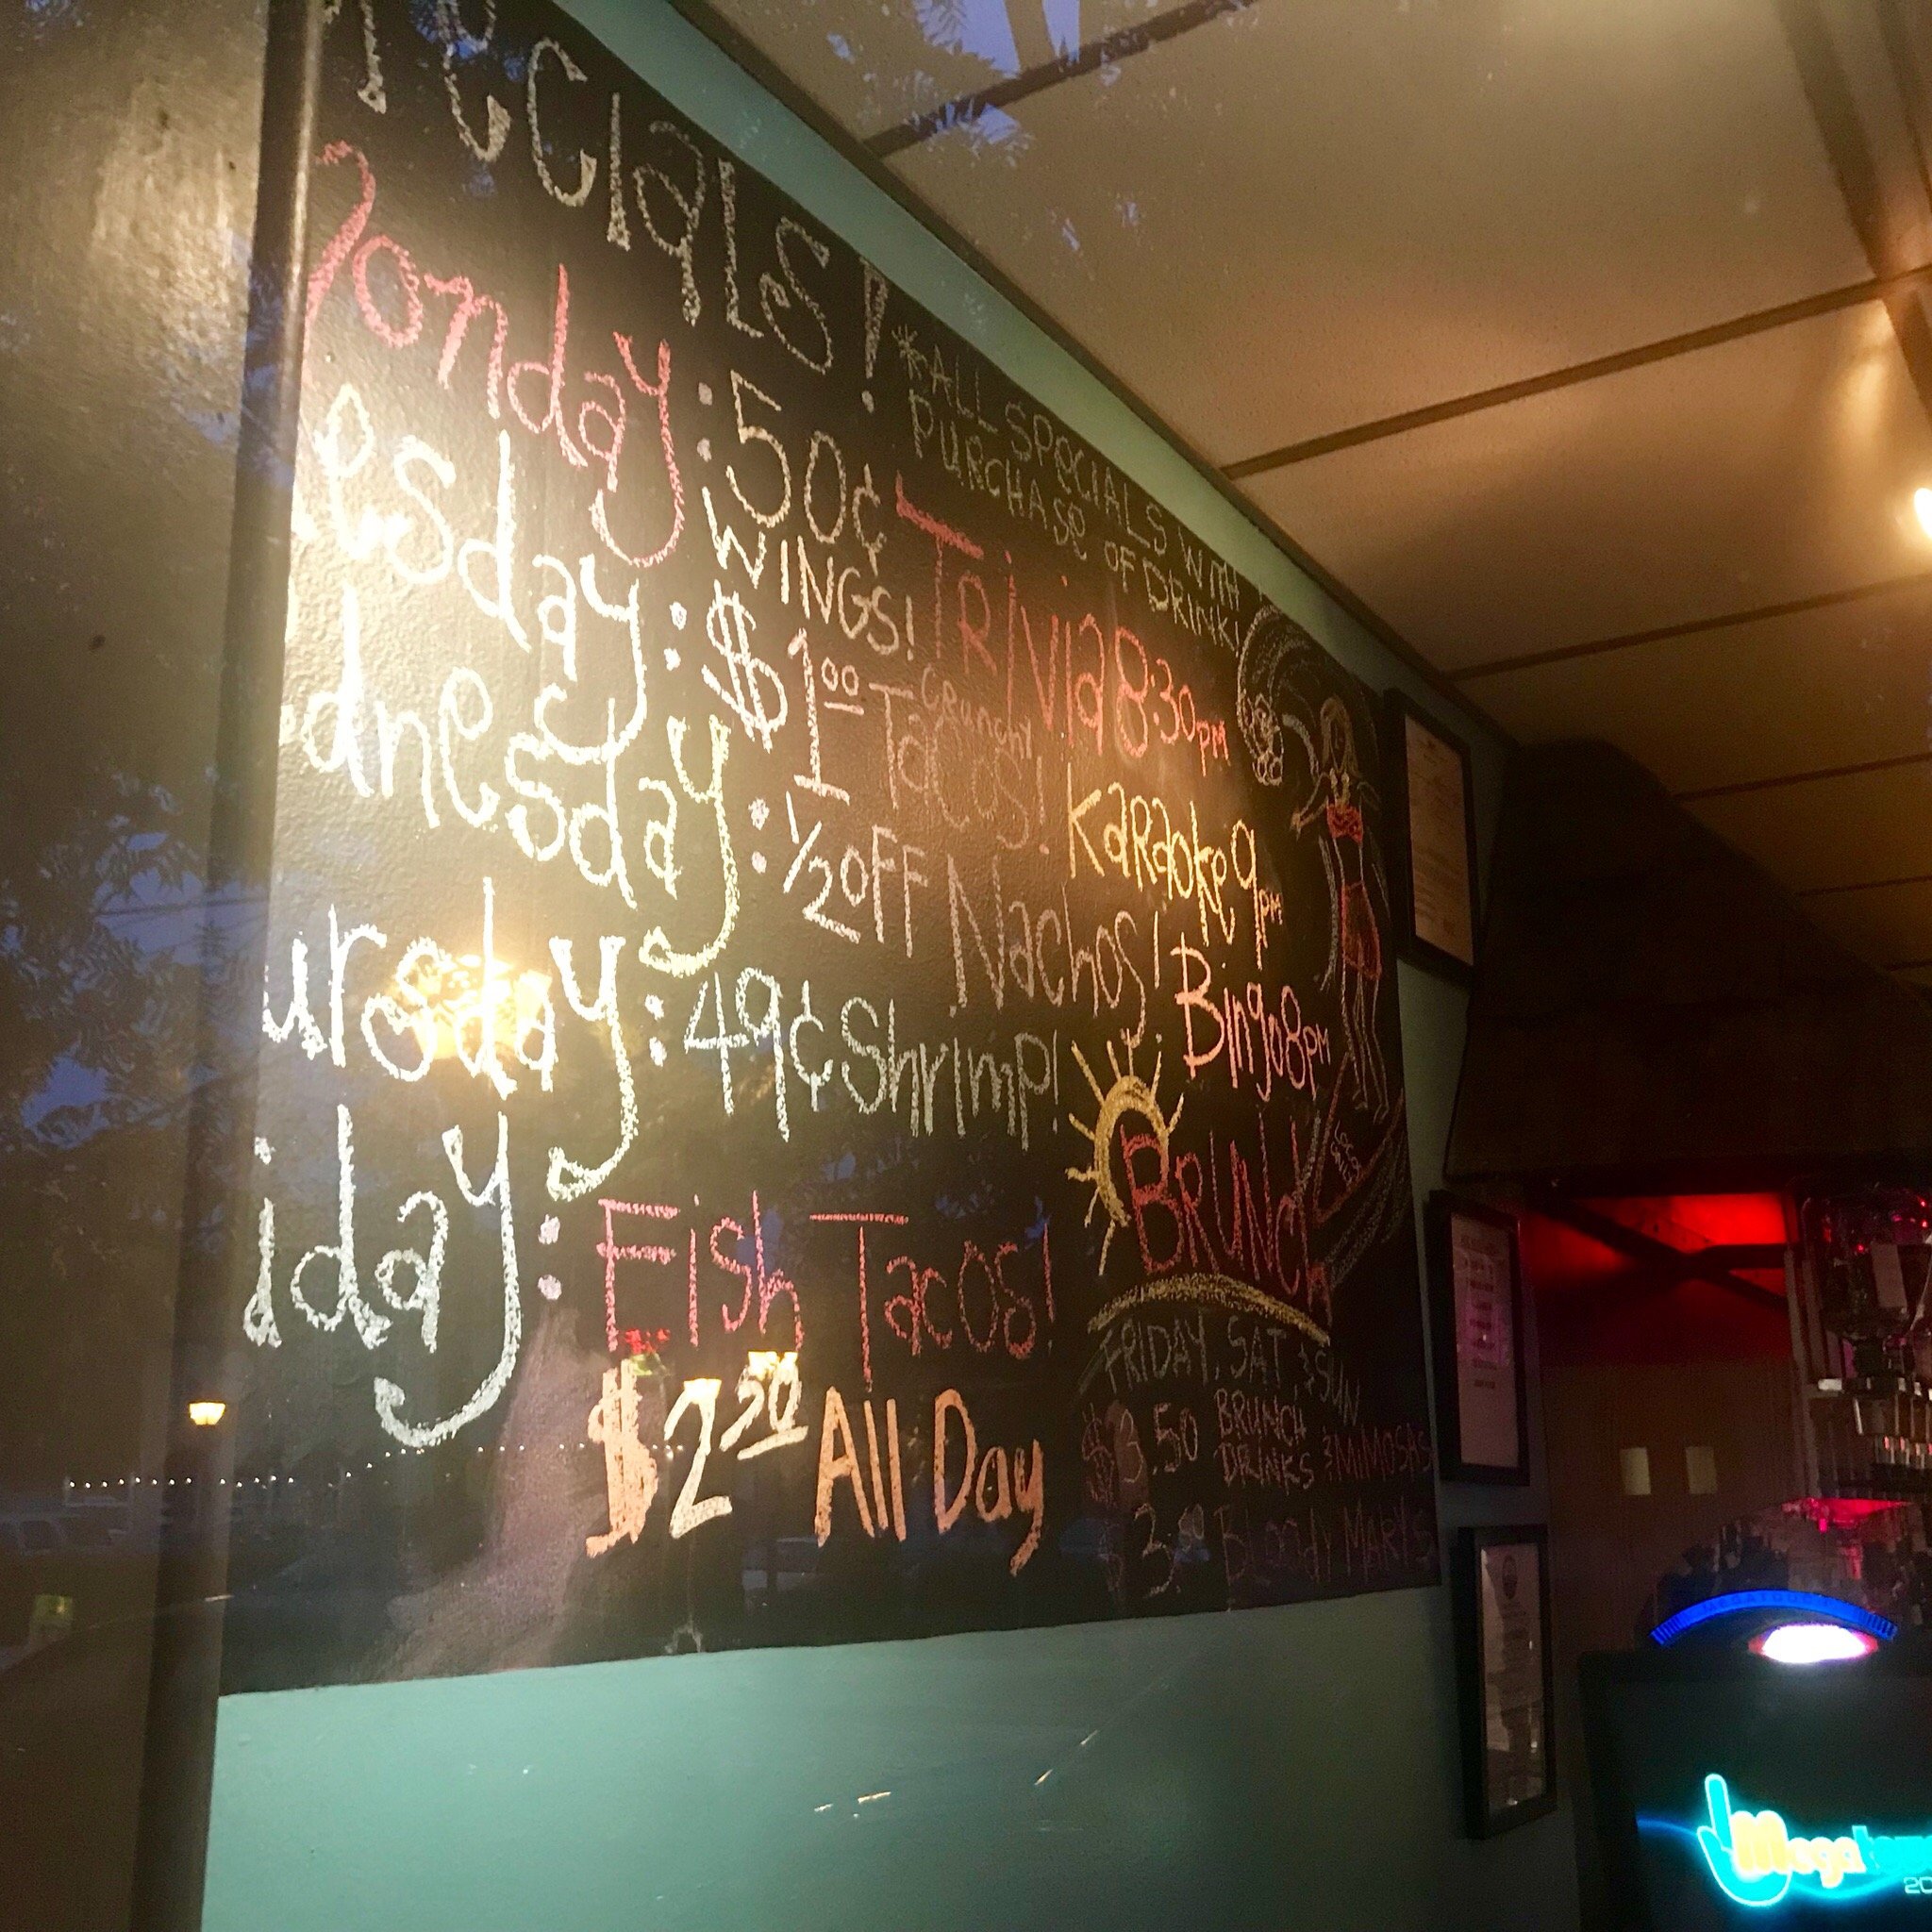 PECIALS!
*ALL SPECIALS WITH
PURCHASE OF DRINK!
Monday: 50¢ WINGS! Trivia 8:30PM
esday: $1.00 Crunchy Tacos! Karaoke 9PM
dnesday: 1/2 OFF Nachos! Bingo 8PM
ursday: 49¢ Shrimp!
iday: Fish Tacos!
$2.50 All Day
BRUNCH
FRIDAY, SAT & SUN
$3.50 BRUNCH DRINKS & MIMOSAS
$3.50 Bloody MARYS
Megatouc